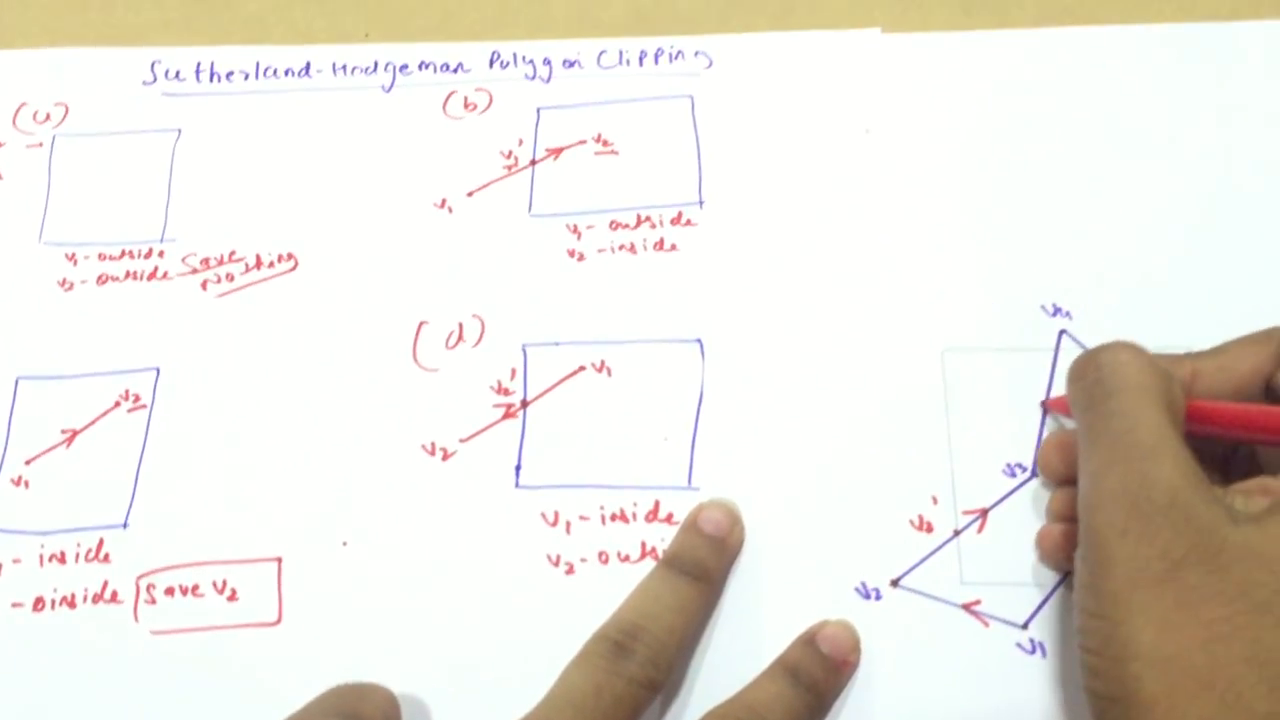 Sutherland-Hodgeman Polygon Clipping
(a)
v1-outside
v2-outside Save Nothing
(b)
v1'
v2
v1
v1-outside
v2-inside
v2
v1
- inside
-oinside Save v2
(d)
v1
v2'
v2
v1-inside
v2-outsi
v4
v3
v2'
v2
v1